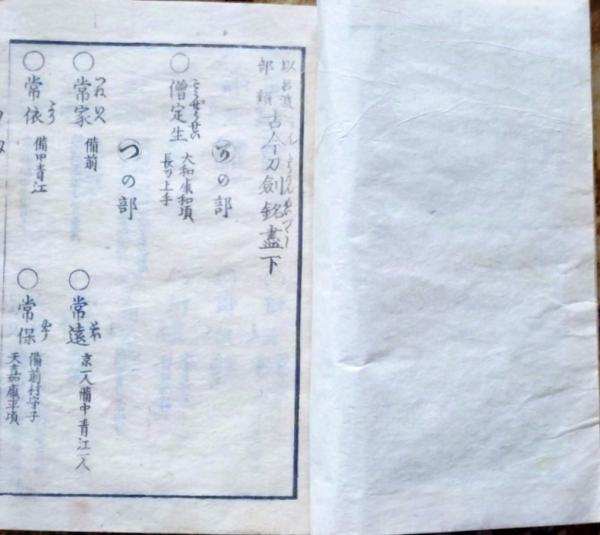 以呂波
部類 古今刀剣銘盡下
その部
○僧定生 大和康和頃
長刀上手
つの部
○常家 備前
○常遠 京一人備中青江一人
○常依 備中青江
○常保 備前村守子
天喜康平頃